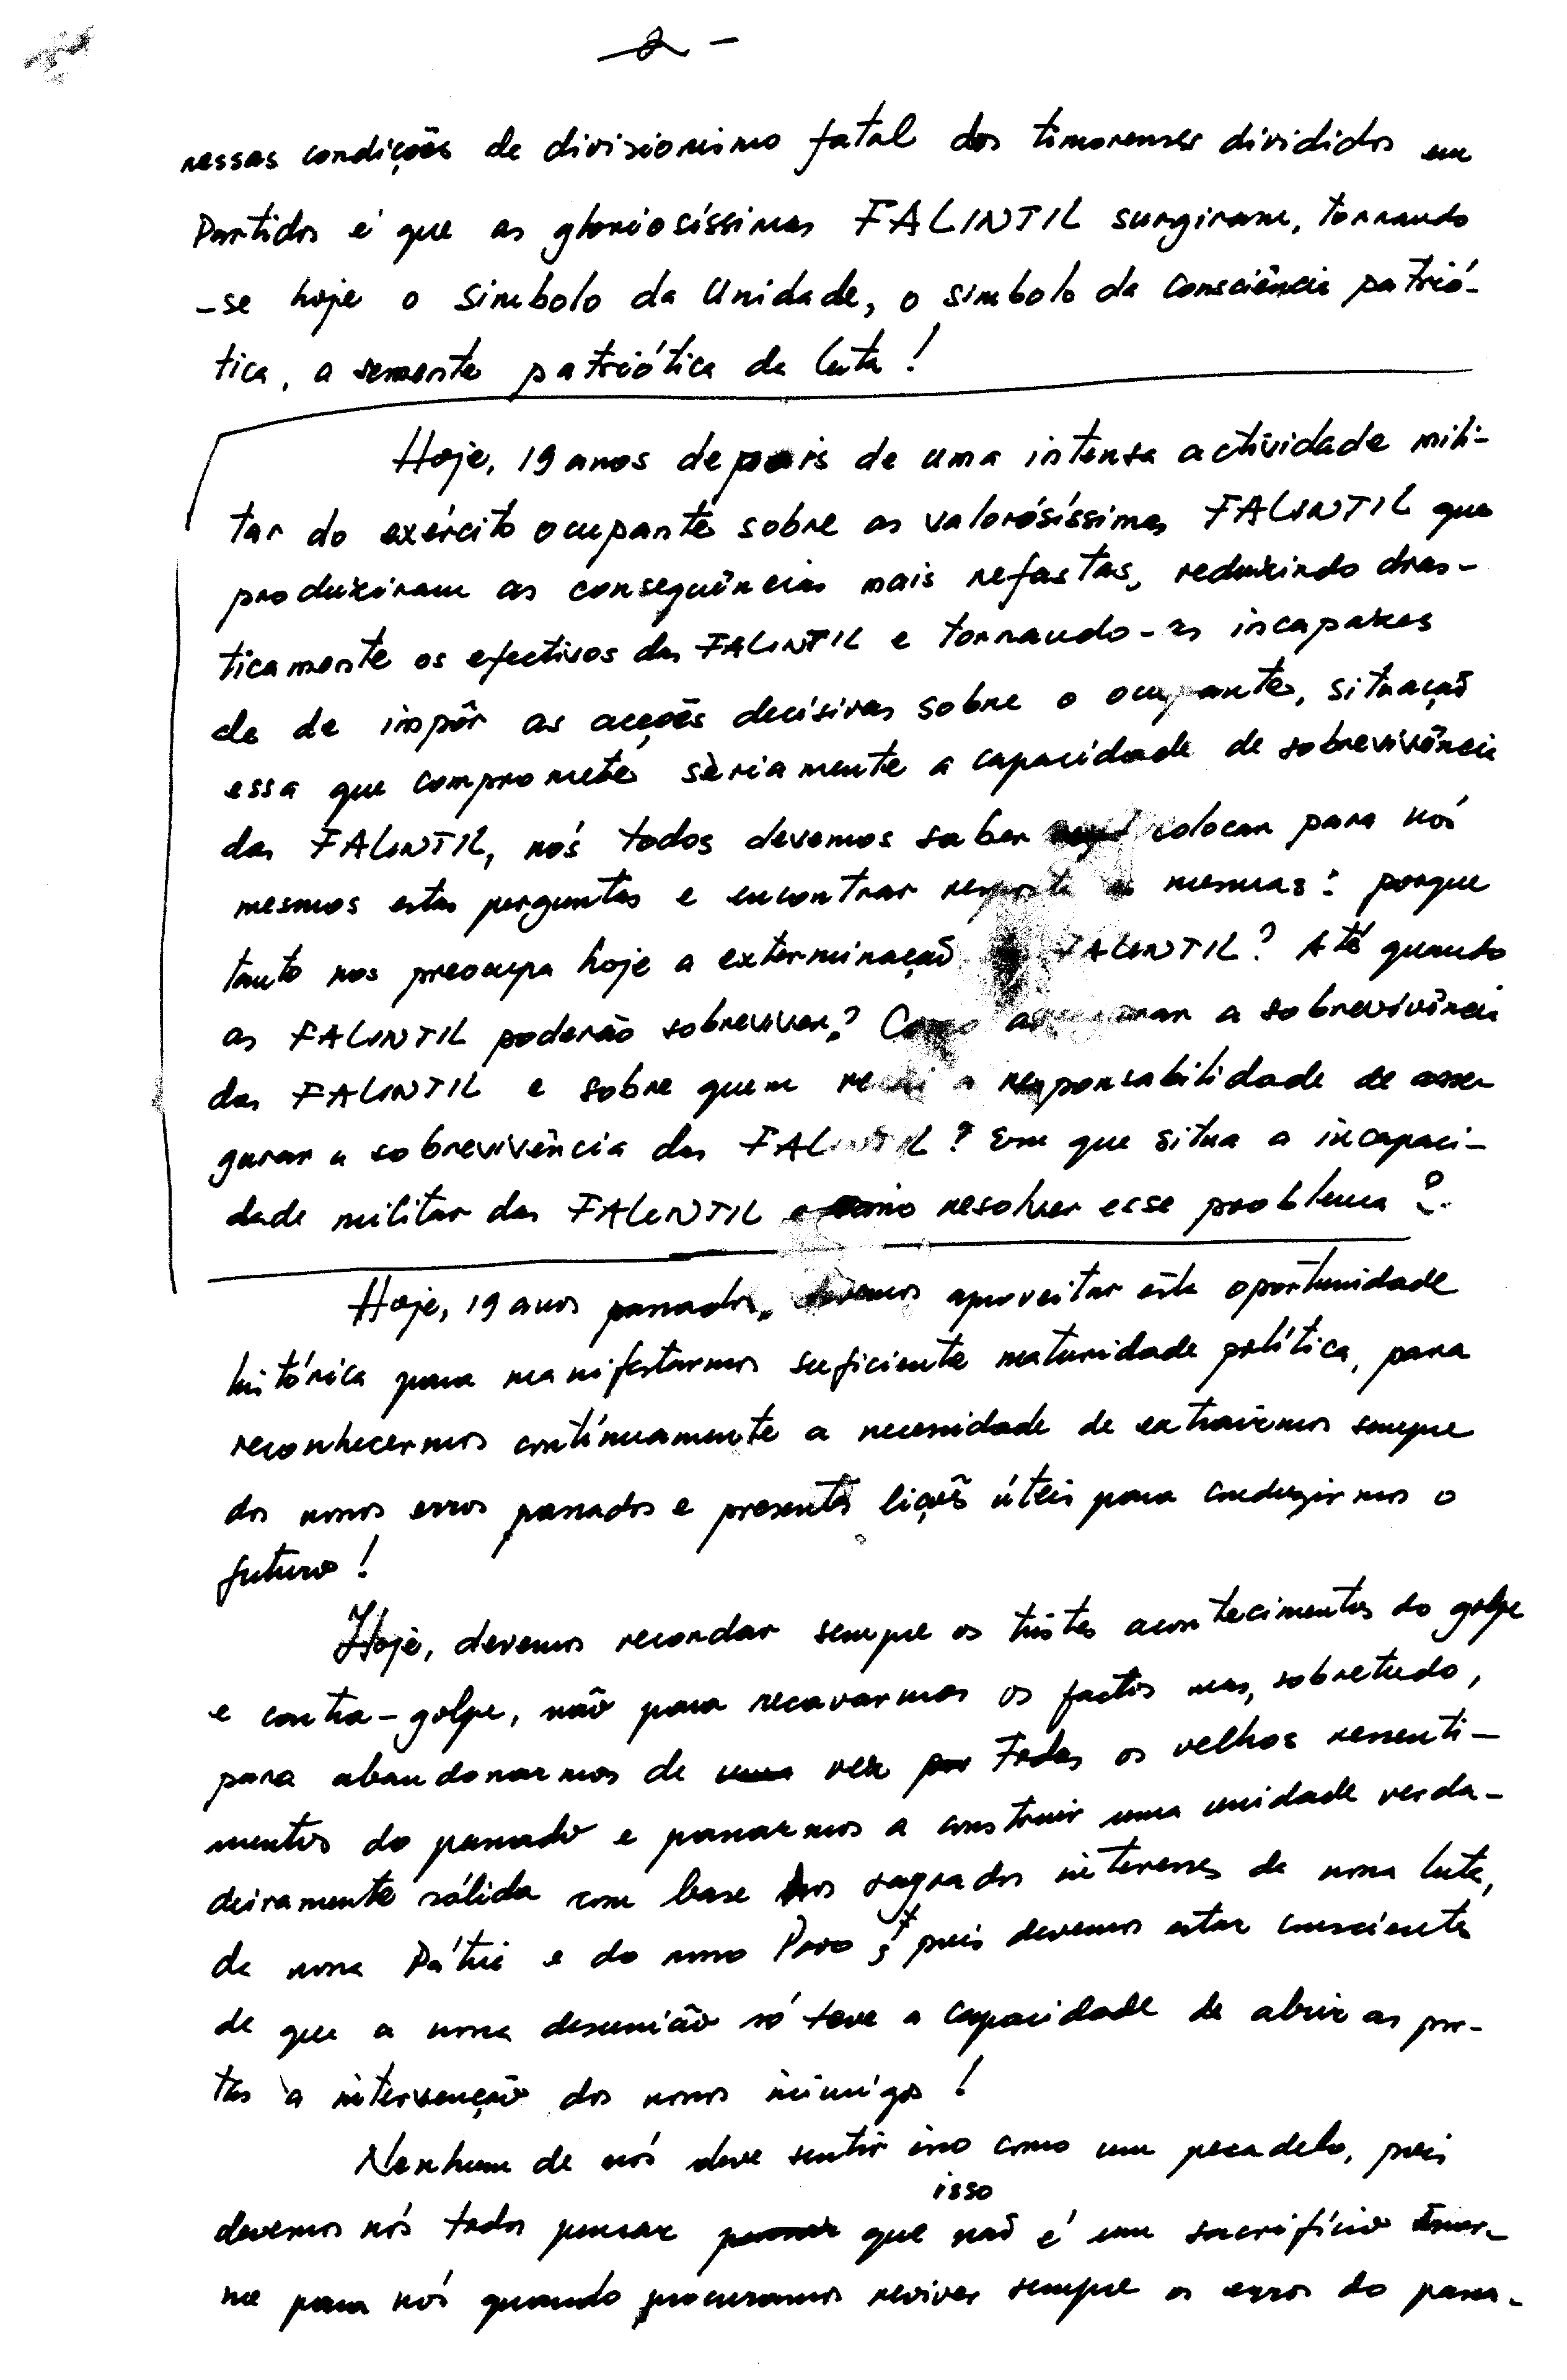 2 -
nessas condições de divisionismo fatal dos timorenses divididos em
Partidos é que as gloriosíssimas FALINTIL surgiram, tornando
-se hoje o simbolo da Unidade, o simbolo da Consciência patrió-
tica, a semente patriótica da luta!
Hoje, 19 anos depois de uma intensa actividade mili-
tar do exército ocupante sobre as valorósíssimas FALINTIL que
produziram as consequências mais nefastas, reduzindo dras-
ticamente os efectivos das FALINTIL e tornando-as incapazes
de de impôr as acções decisivas sobre o ocupante, situação
essa que compromete sèriamente a capacidade de sobrevivência
das FALINTIL, nós todos devemos saber colocar para nós
mesmos estas perguntas e encontrar mesmas: porque
tanto nos preocupa hoje a exterminação FALINTIL? Até quando
as FALINTIL poderão sobreviver? Como a sobrevivência
das FALINTIL e sobre quem a responsabilidade de asse
gurar a sobrevivência das FALINTIL? Em que situa a incapaci-
dade militar das FALINTIL e como resolver esse problema?
Hoje, 19 anos passados, devemos aproveitar esta oportunidade
histórica para manifestarmos suficiente maturidade política, para
reconhecermos contínuamente a necessidade de extrairmos sempre
dos nossos erros passados e presentes lições úteis para conduzirmos o
futuro!
Hoje, devemos recordar sempre os tristes acontecimentos do golpe
e contra-golpe, não para recavarmos os factos mas, sobretudo,
para abandonarmos de uma vez por todas os velhos ressenti-
mentos do passado e passarmos a construir uma unidade verda-
deiramente sólida com base nos sagrados interesses da nossa luta,
da nossa Pátria e do nosso Povo; pois devemos estar conscientes
de que a nossa desunião só teve a capacidade de abrir as por-
tas à intervenção dos nossos inimigos!
Nenhum de nós deve sentir isso como um pecadelo, pois
devemos nós todos pensar que isso não é um sacrifício enor-
me para nós quando procuramos reviver sempre os erros do passa-